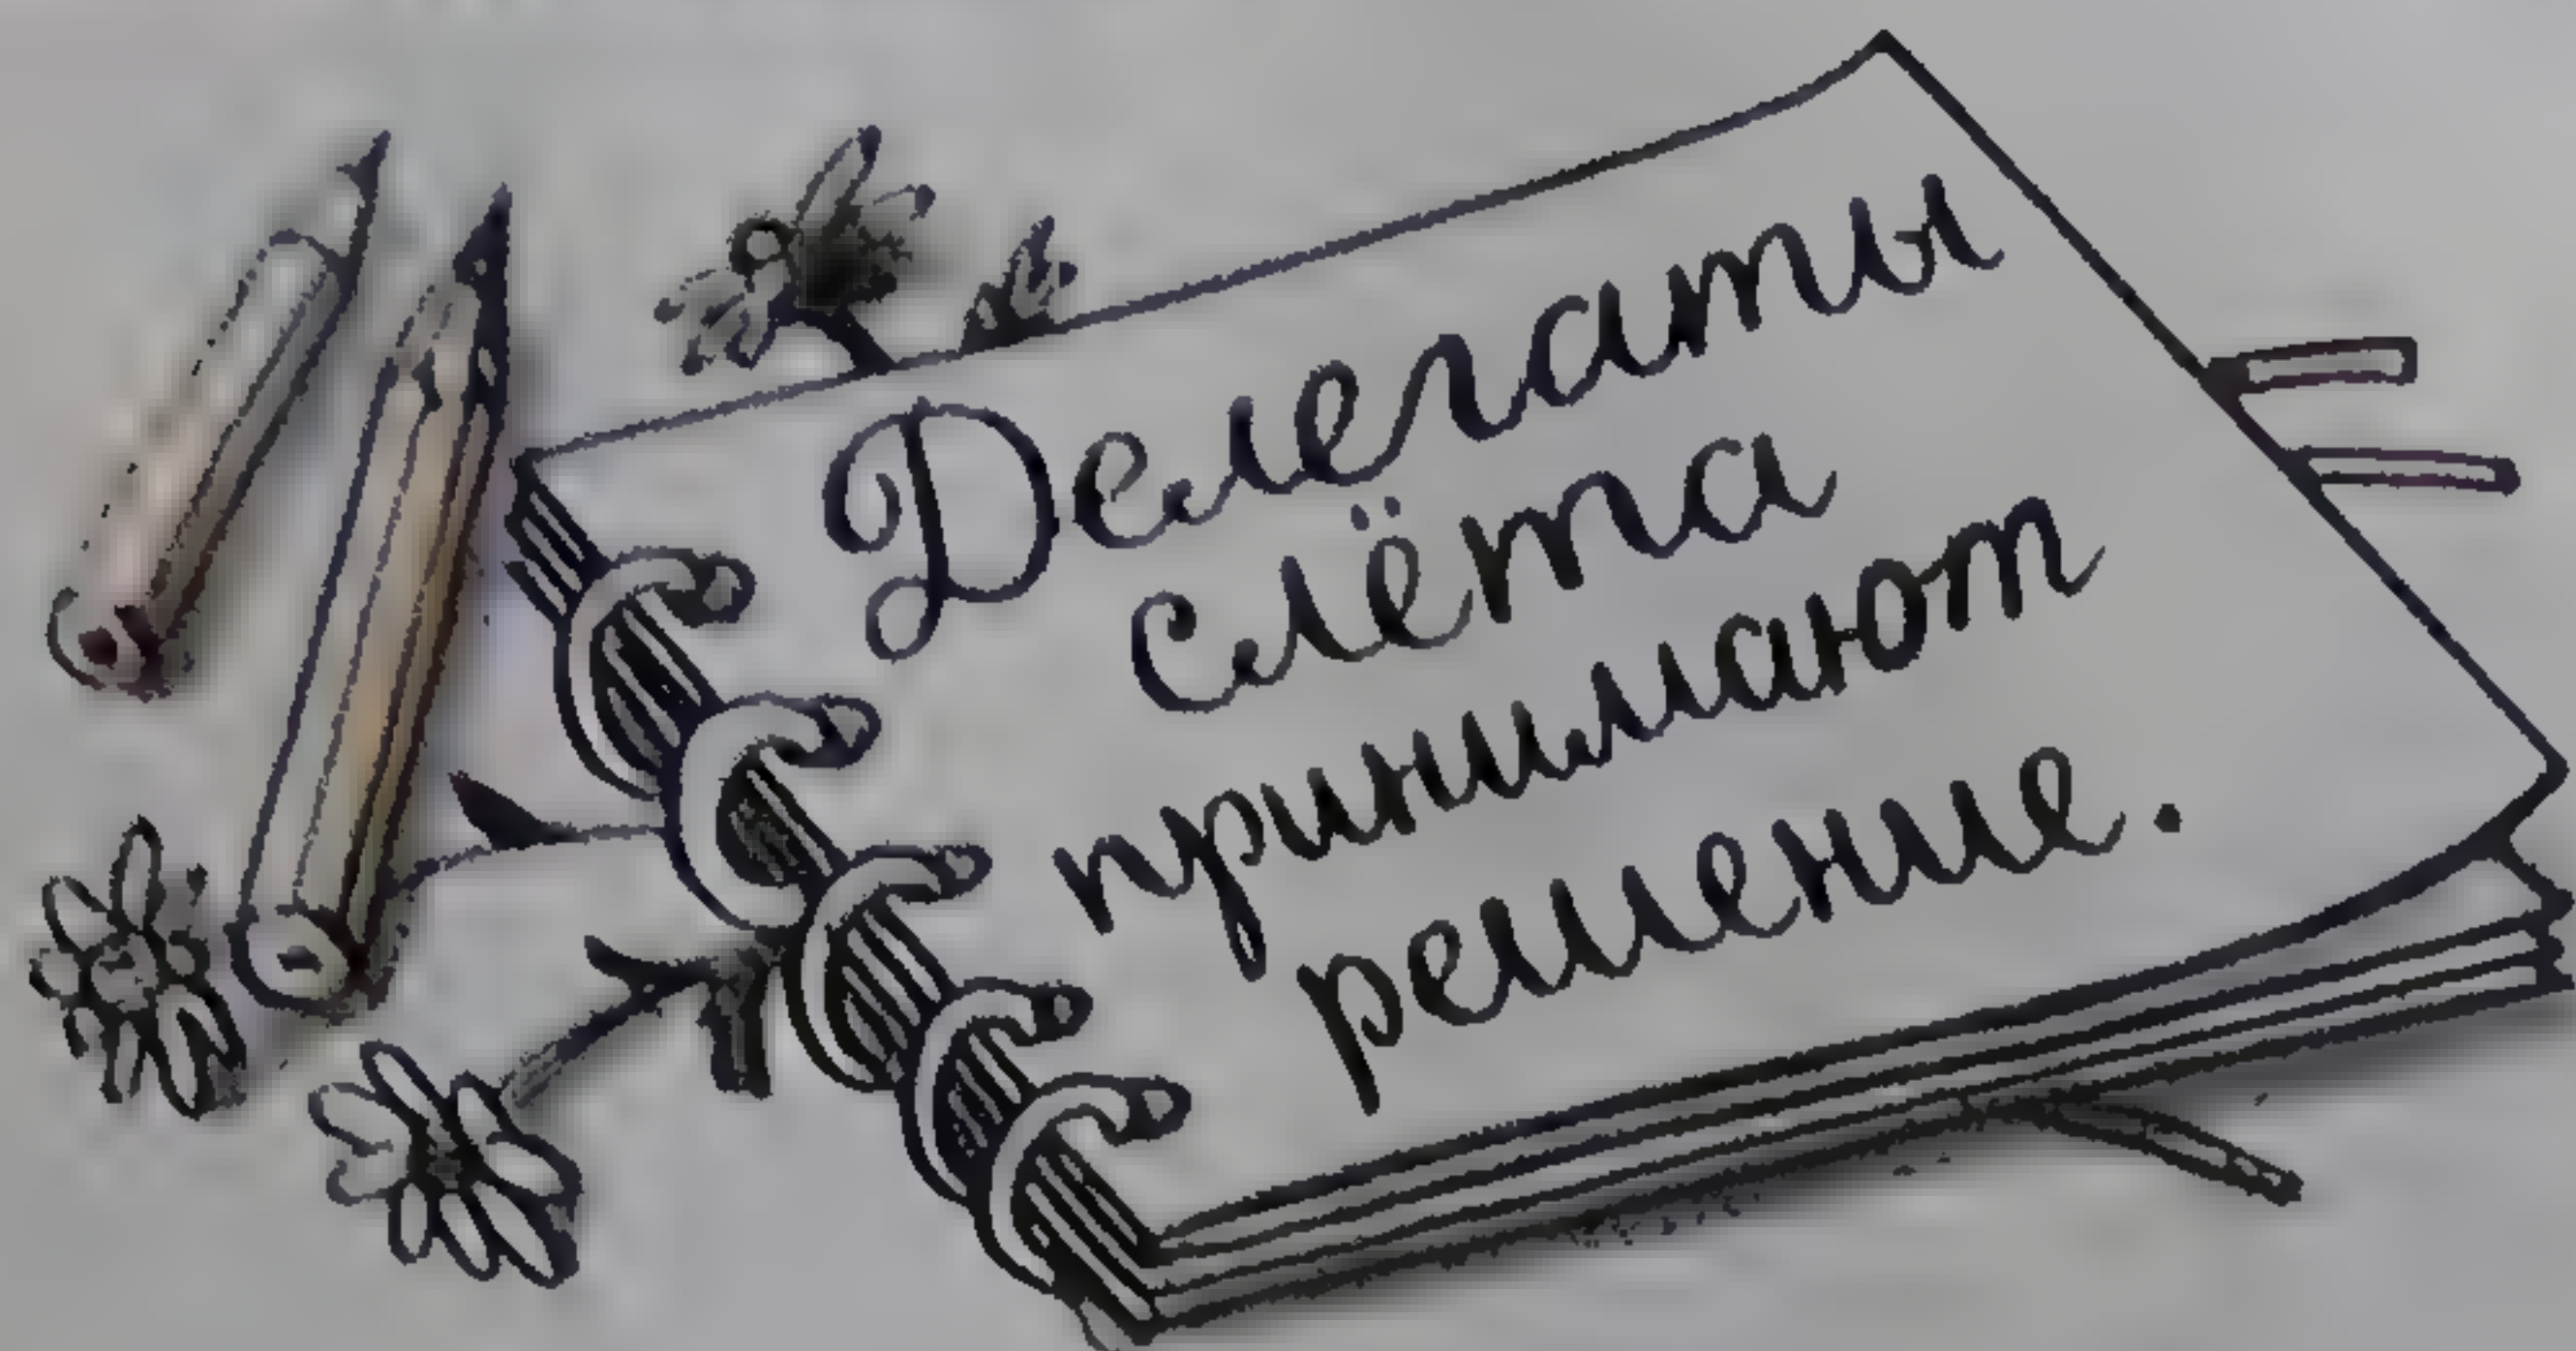 Делегаты
слёта
принимают
решение.